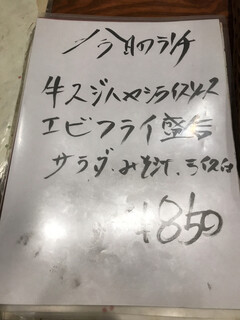 今日のランチ
牛スジハヤシライスソース
エビフライ盛合
サラダ、みそ汁、ライス付
¥850